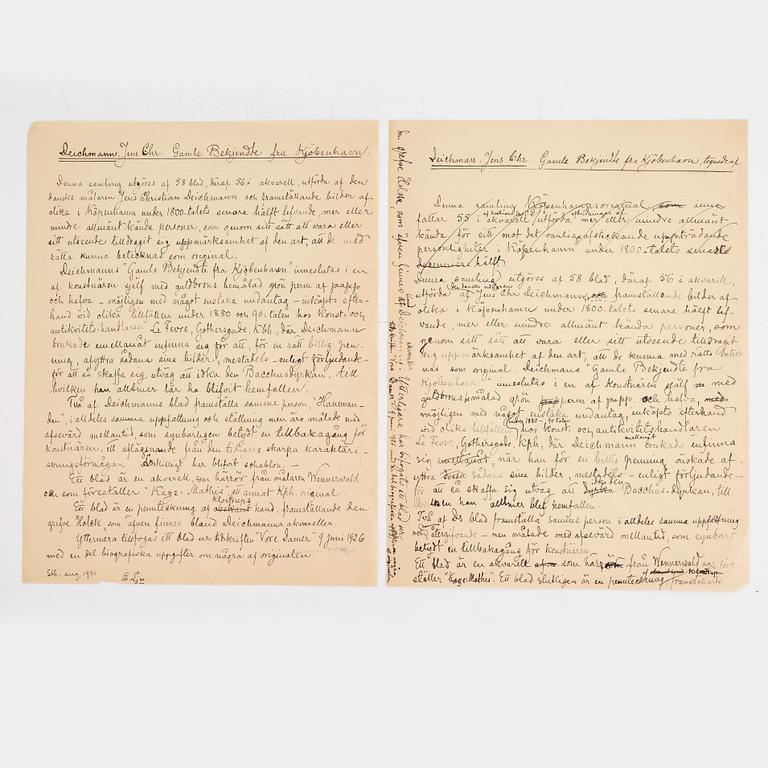 Deichmann, Jens Chr. Gamle Bekjendte fra Kjöbenhavn.
Denna samling utgöres af 58 blad, däraf 56 i akvarell, utförda af den
danske målaren Jens Christian Deichmann och framställande bilder af
olika i Köpenhamn under 1800-talets senare hälft lefvande, mer eller
mindre allmänt kända personer, som genom sitt sätt att vara eller
sitt utseende tilldragit sig uppmärksamhet af den art, att de med
rätta kunna betecknas som original.
Deichmanns "Gamle Bekjendte fra Kjöbenhavn" inneslutas i en
af konstnären själf med gulbrons bemålad ask perm af papp
och hafva - möjligen med något enstaka undantag - inköpts efter-
hand vid olika tillfällen under 1880 och 90-talen hos konst- och
antikvitetshandlaren Le Fevre, Gothersgade, Kbh., där Deichmann
brukade emellanåt infinna sig för att, för en rätt billig pen-
ning, afyttra sådana sina bilder, mestadels - enligt förljudande -
för att så skaffa sig utväg att idka den Bacchusdyrkan, till
hvilken han alltmer lär ha blifvit hemfallen.
Två af Deichmanns blad framställa samme person, "Hanemanden",
i alldeles samma uppfattning och ställning men äro målade med
afsevärd mellantid, som synbarligen betydt en tillbakagång för
konstnären, ity aflägsnande från den tidigare skarpa karaktäri-
seringsförmågan
har blifvit schablon. -
Ett blad är en akvarell, som härrör från målaren Wennerwald
och som föreställer "Kage-Mathis", ett annat Kph. original.
Ett blad är en penteckning af Klæstrups hand, framställande den
grefve Holck, som äfven finnes bland Deichmanns akvareller.
Yttermera tillfogad är ett blad ur tidskriften "Vore Damer" 9 juni 1926
med en del biografiska uppgifter om några af originalen.
Sth. aug. 1931
Deichman, Jens Chr. Gamle Bekjendte fra Kjöbenhavn,
Denna samling
fattar 55 i akvarell utförda mer eller mindre allmänt
kända för sitt mot det vardagsafstickande uppträdande
personligheter i Köpenhamn under 1800-talets senare
hälft
Denna samling utgöres af 58 blad, däraf 56 i akvarell,
utförda af Jens Chr Deichmann, framställande bilder af
olika i Köpenhamn under 1800-talets senare hälft lef-
vande, mer eller mindre allmänt kända personer, som
genom sitt sätt att vara eller sitt utseende tilldragit
sig uppmärksamhet af den art, att de kunna med rätta
nås som orginal. Deichmans "Gamle Bekjendte fra
Kjöbenhavn" inneslutas i en af konstnären själf med
perm af papp och hafva,
möjligen med något enstaka undantag, inköpts efterhand
vid olika tillfällen hos konst- och antikvitetshandlaren
Le Fevre, Gothersgade, Kph, där Deichmann brukade infinna
sig emellanåt, när han för en billig penning önskade af-
yttra sådana sina bilder, mestadels - enligt förljudande -
för att så skaffa sig utväg att Bacchus-dyrkan, till
han alltmer blef hemfallen.
Två af Ds blad framställa samme person i alldeles samma uppfattning
och - men målade med afsevärd mellantid, som synbart
betydt en tillbakagång för konstnären.
Ett blad är en akvarell som härrör från Wennerwald och före-
ställer "Kage-Mathis". Ett blad slutligen är en penteckning framställande